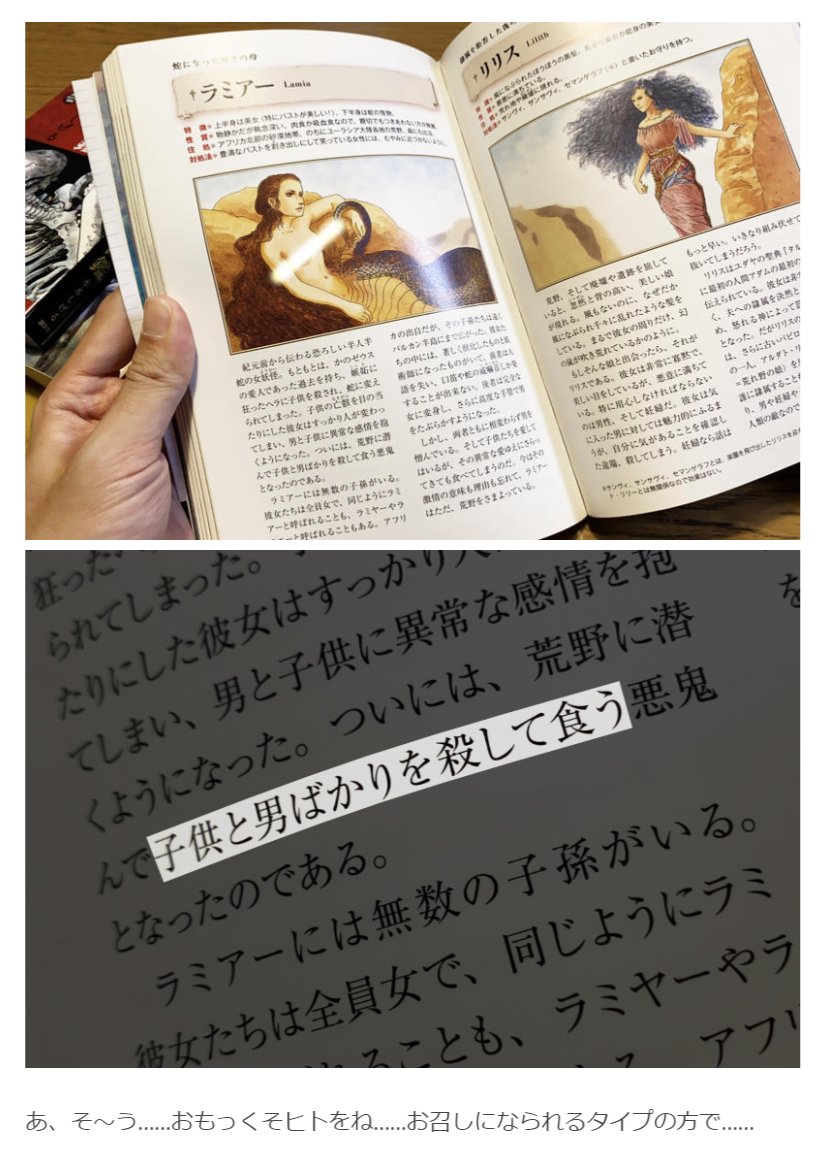 蛇になった嘆きの母
†ラミアー Lamia
特 徴＊上半身は美女（特にバストが美しい！）、下半身は蛇の怪物。
性 質＊物静かだが執念深い。肉食か吸血食なので、親切でもつきあわない方が無難。
住 処＊アフリカ北部の砂漠地帯、のちにユーラシア大陸各地の荒野、森にも出没。
対処法＊豊満なバストを剥き出しにして笑っている女性には、むやみに近づかないように。
紀元前から伝わる恐ろしい半人半
蛇の女妖怪。もともとは、かのゼウス
の愛人であった過去を持ち、嫉妬に
狂ったヘラに子供を殺され、蛇に変え
られてしまった。子供の亡骸を目の当
たりにした彼女はすっかり人が変わっ
てしまい、男と子供に異常な感情を抱
くようになった。ついには、荒野に潜
んで子供と男ばかりを殺して食う悪鬼
となったのである。
ラミアーには無数の子孫がいる。
彼女たちは全員女で、同じようにラミ
アーと呼ばれることも、ラミヤーやラ
ミニーと呼ばれることもある。アフリ
カの出自だが、その子孫たちは遠く
バルカン半島にまで広がった。彼女た
ちの中には、著しく獣化したものと妖
術師になったものがいて、前者は人
語を失い、口笛や蛇の威嚇音しか発
することが出来ない。後者は完全な
女に変身し、さらに高度な手管で男
をたぶらかすようになった。
しかし、両者ともに相変わらず男を
憎んでいる。そして子供たちを愛して
はいるが、その異常な愛ゆえにさらっ
てきても食べてしまうのだ。今はその
激情の意味も理由も忘れて、ラミアー
はただ、荒野をさまよっている。
†リリス Lilith
対処法＊サンヴィ、サンサヴィ、セマンゲラフ（※）と書いたお守りを持つ。
荒野、そして廃墟や遺跡を旅して
いると、忽然と背の高い、美しい娘
が現れる。風もないのに、なぜだか
風になぶられ千々に乱れたような髪を
している。まるで彼女の周りだけ、幻
の嵐が吹き荒れているかのように。
もしそんな娘と出会ったら、それが
リリスである。彼女は非常に寡黙で、
美しい目をしているが、悪意に満ちて
いる。特に用心しなければならない
のは男性、そして妊婦だ。彼女は気
に入った男に対しては魅力的にふるま
うが、自分に気があることを確認し
た途端、殺してしまう。妊婦なら話は
もっと早い、いきなり組み伏せて
抜いてしまうだろう。
リリスはユダヤの聖典『タル
に最初の人間アダムの最初の
伝えられている。彼女は非
く、夫への隷属を決然と
め、怒れる神によって
となった。だがリリスの
は、さらに古いバビロ
の一人、アルダト・リ
＝荒野の娘）を
誰に隷属すること
り、男や妊婦や
人類の敵なので
狂った
られてしまった。
たりにした彼女はすっかり人
てしまい、男と子供に異常な感情を抱
くようになった。ついには、荒野に潜
んで子供と男ばかりを殺して食う悪鬼
となったのである。
ラミアーには無数の子孫がいる。
彼女たちは全員女で、同じようにラミ
れることも、ラミヤーやラ
アフリ
あ、そ〜う……おもっくそヒトをね……お召しになられるタイプの方で……